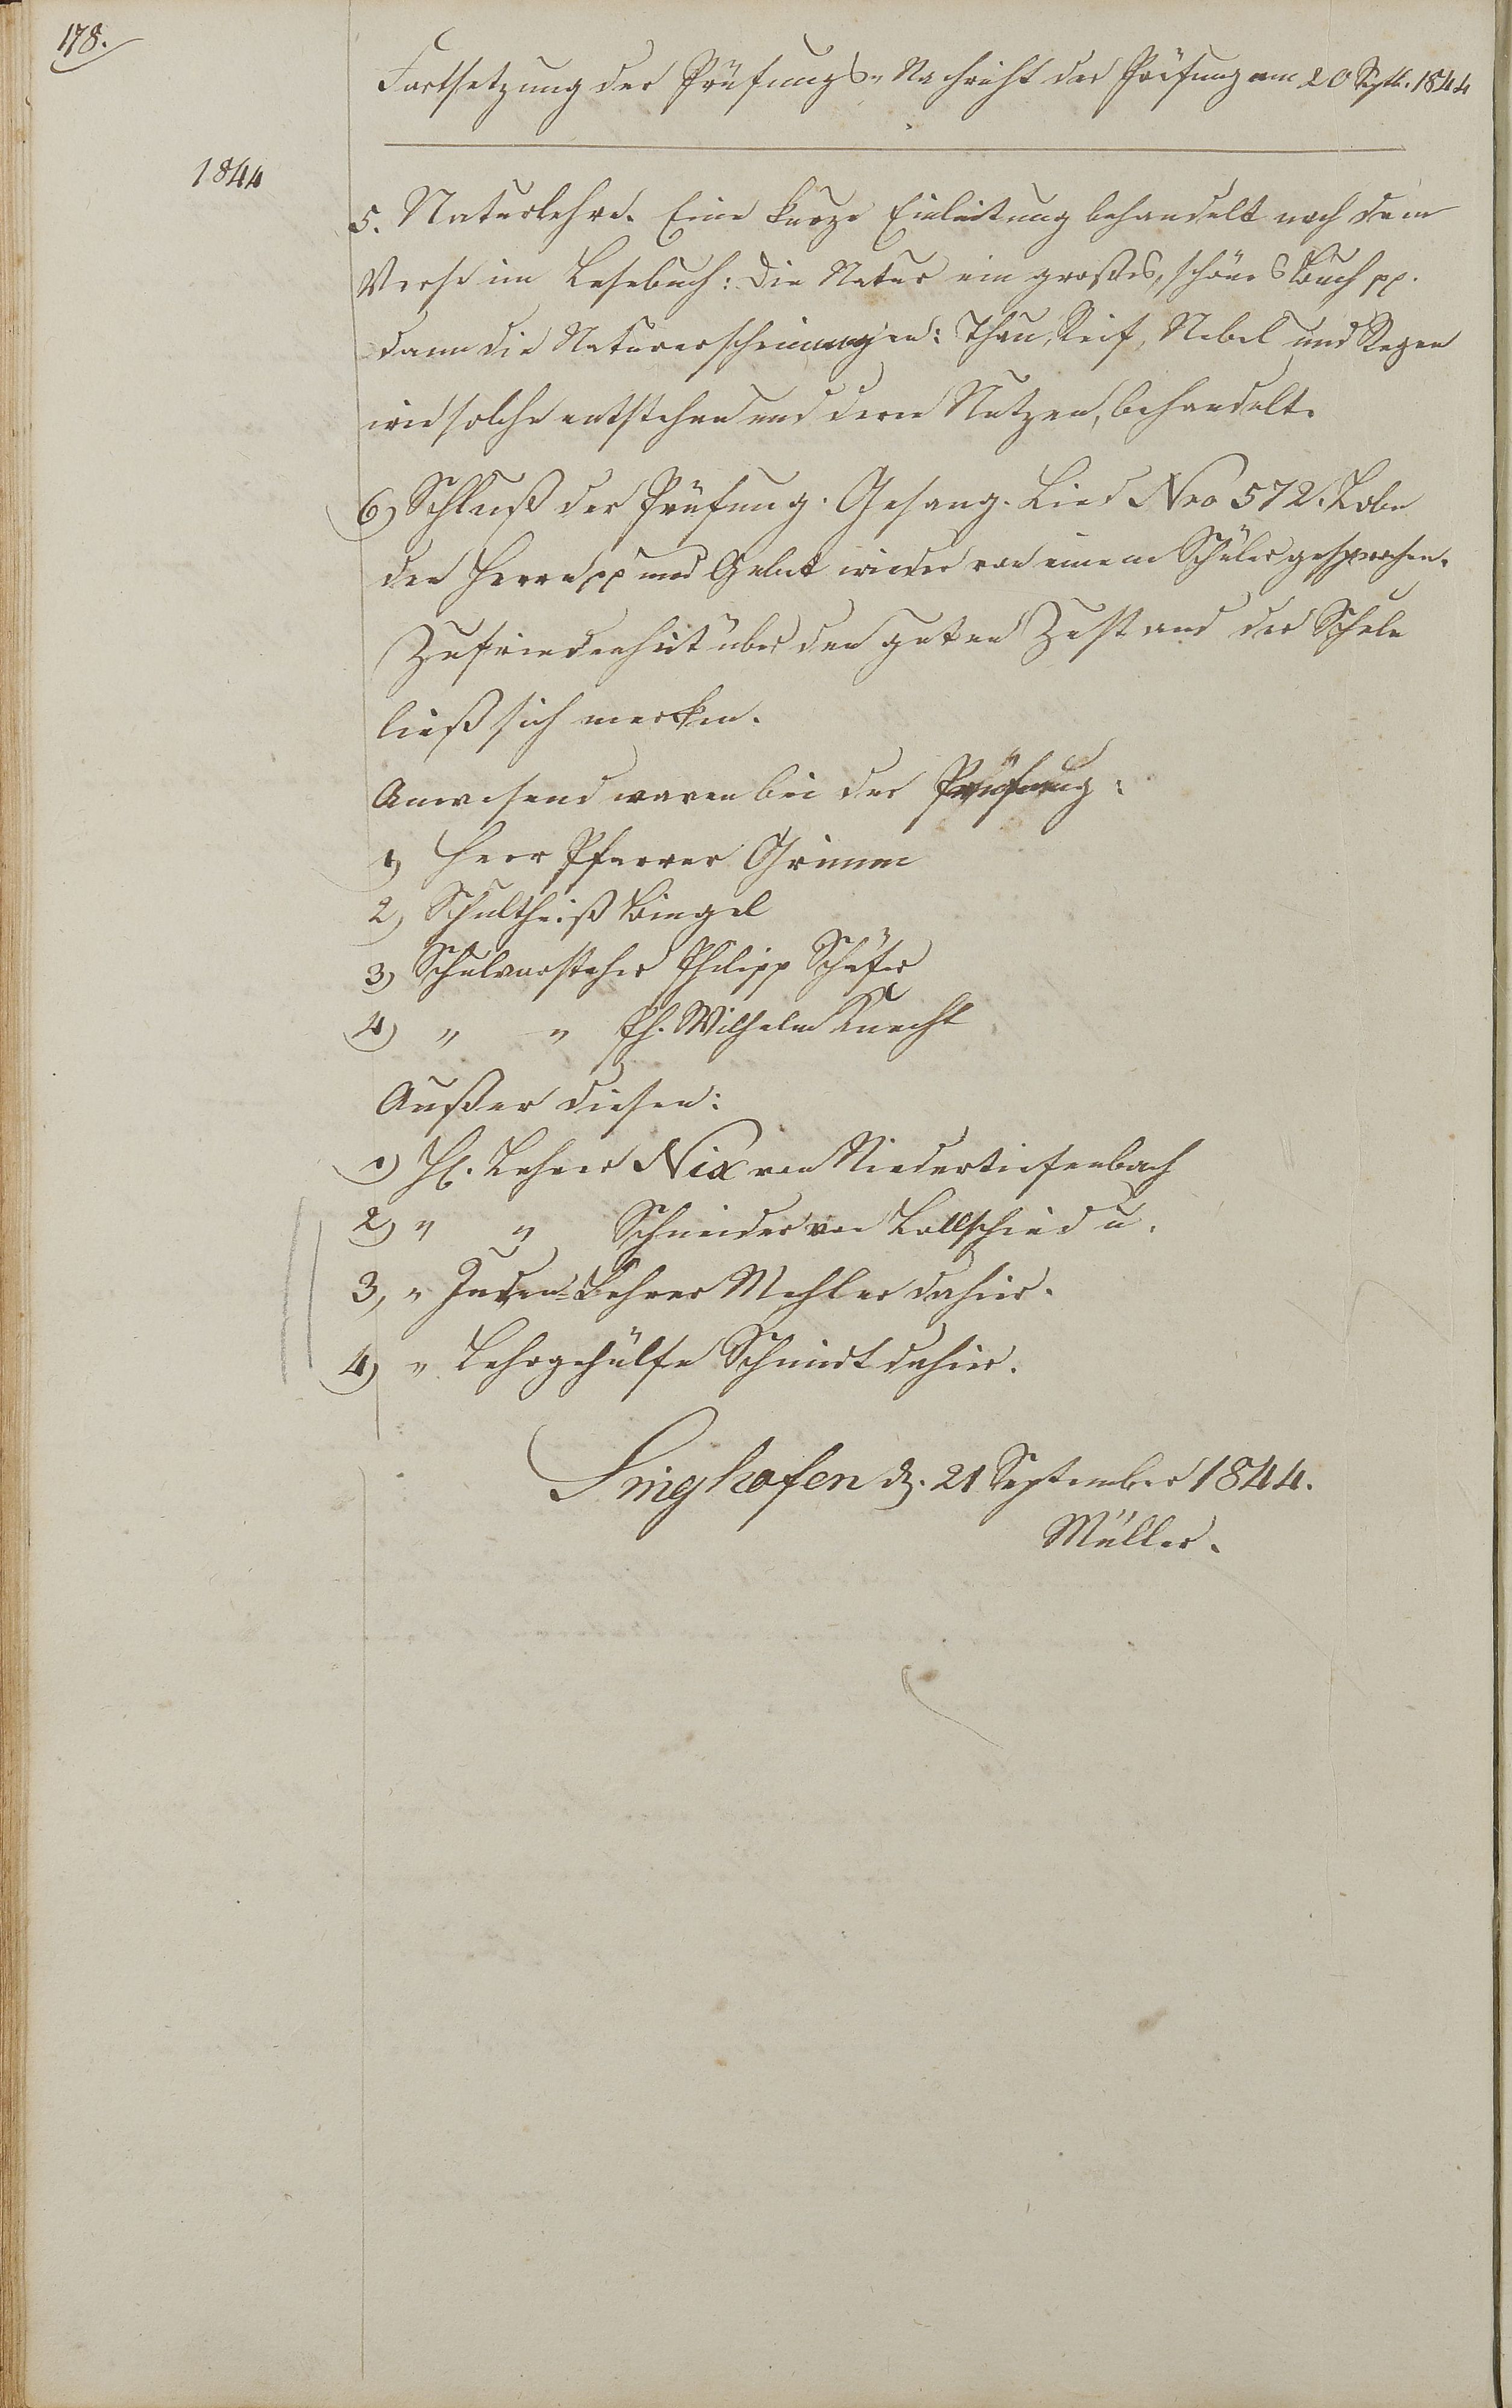 178.
Fortsetzung der Prüfungs-Nachricht der Prüfung am 20 Septb. 1844
1844
5. Naturlehre. Eine kurze Einleitung behandelt nach dem
Verse im Lesebuch: Die Natur ein großes, schönes Buch pp.
dann die Naturerscheinungen: Thau, Reif, Nebel und Regen
wie solche entstehen und deren Nutzen, behandelt.
6) Schluß der Prüfung. Gesang. Lied Nro 572. Lobe
den Herren pp und Gebet wieder von einem Schüler gesprochen.
Zufriedenheit über den guten Zustand der Schule
ließ sich merken.
Anwesend waren bei der Prüfung:
1) Herr Pfarrer Grimm
2) Schultheiß Bingel
3) Schulvorsteher Philipp Schäfer
4) " " Ph. Wilhelm Knecht
Außer diesen:
1) H. Lehrer Nix von Niedertiefenbach
2) " " Schneider von Lollschied u.
3, " Juden-Lehrer Mehler dahier.
4) " Lehrgehülfe Schmidt dahier.
Singhofen d. 21 September 1844.
Müller.